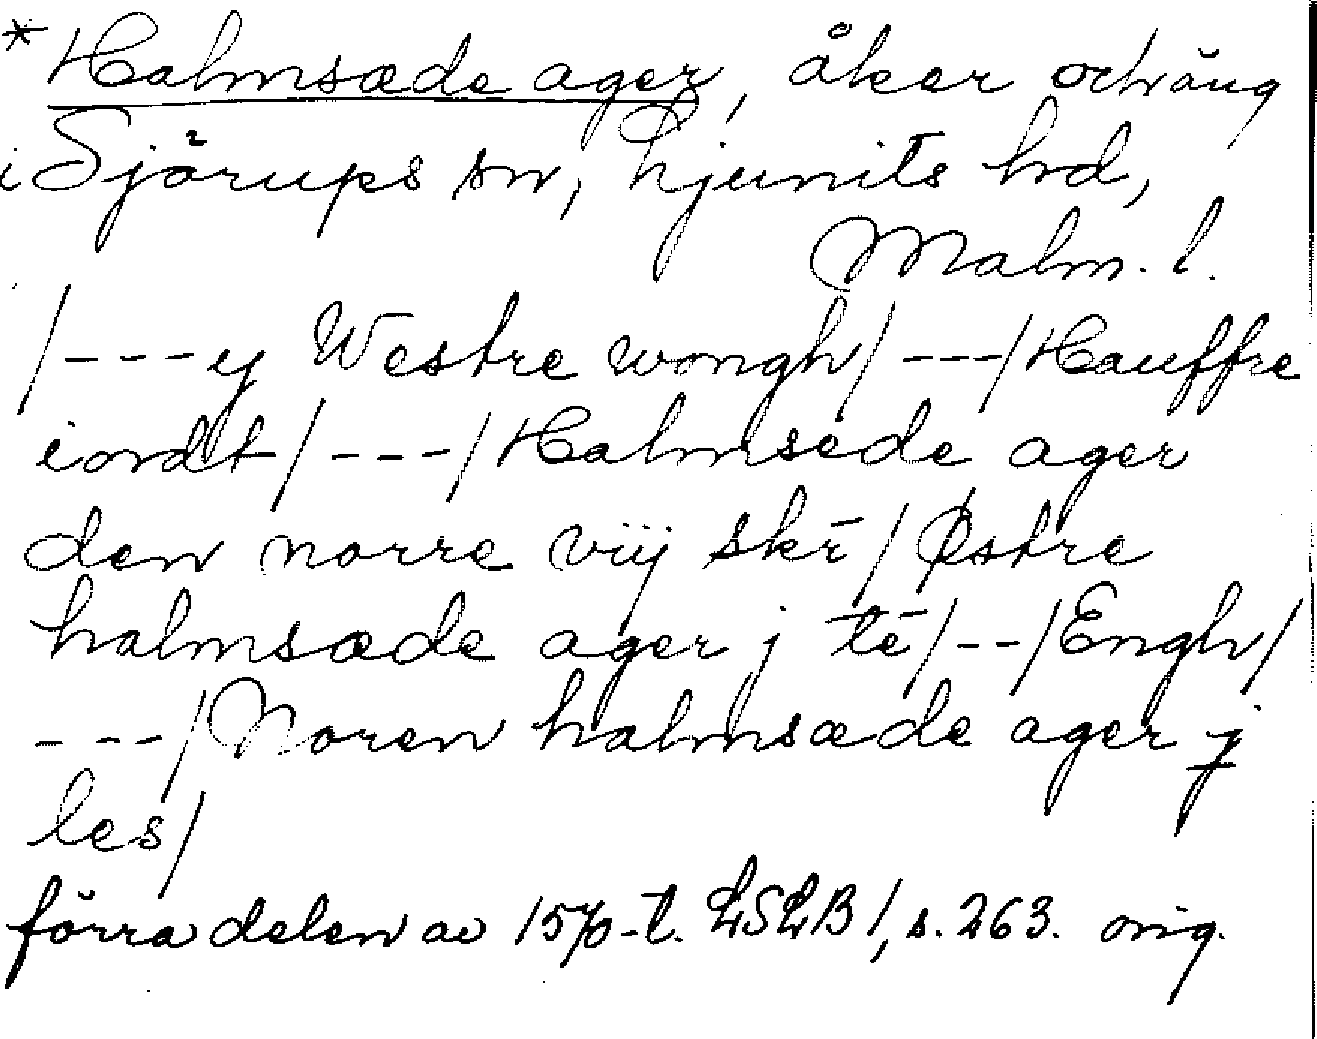 * Halmsæde ager, åker och äng
i Sjörups sn, Ljunits hd,
Malm. l.
/---y Westre wongh/---/Hauffre
iordt/---/Halmsede ager
den norre vij skr̄/Østre
halmsæde ager j tē/--/Engh/
---/Noren halmsæde ager ɉ
les/
förra delen av 1570-t. LSLB 1, s. 263. orig.